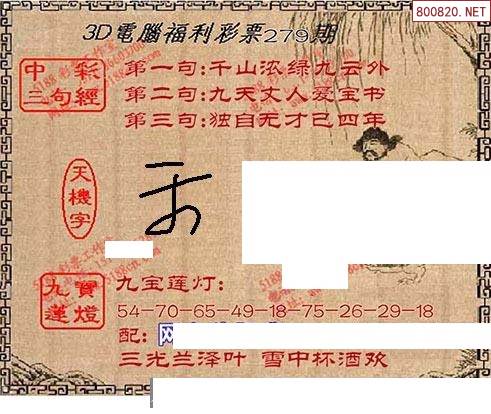 800820.NET
3D電腦福利彩票279期
中彩
三句經
第一句:千山浓绿九云外
第二句:九天丈人爱宝书
第三句:独自无才已四年
天機字
九寶
蓮燈
九宝莲灯:
54-70-65-49-18-75-26-29-18
配:
三光兰泽叶 雪中杯酒欢